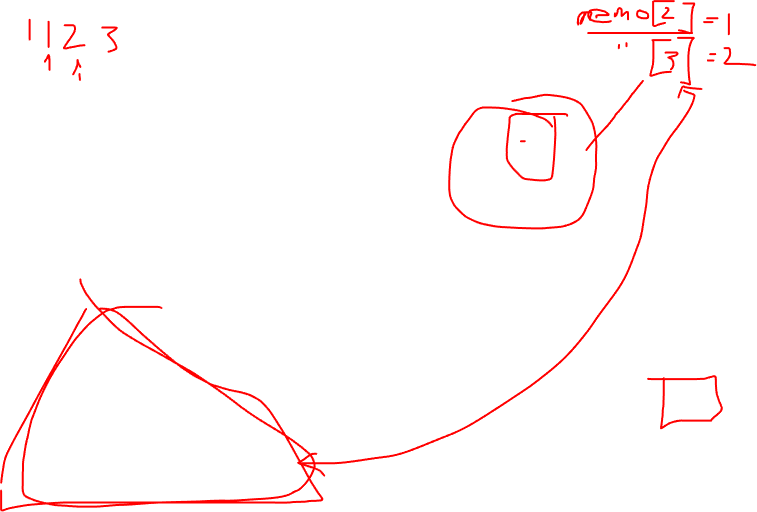 1 1 2 3
memo[2] = 1
" [3] = 2